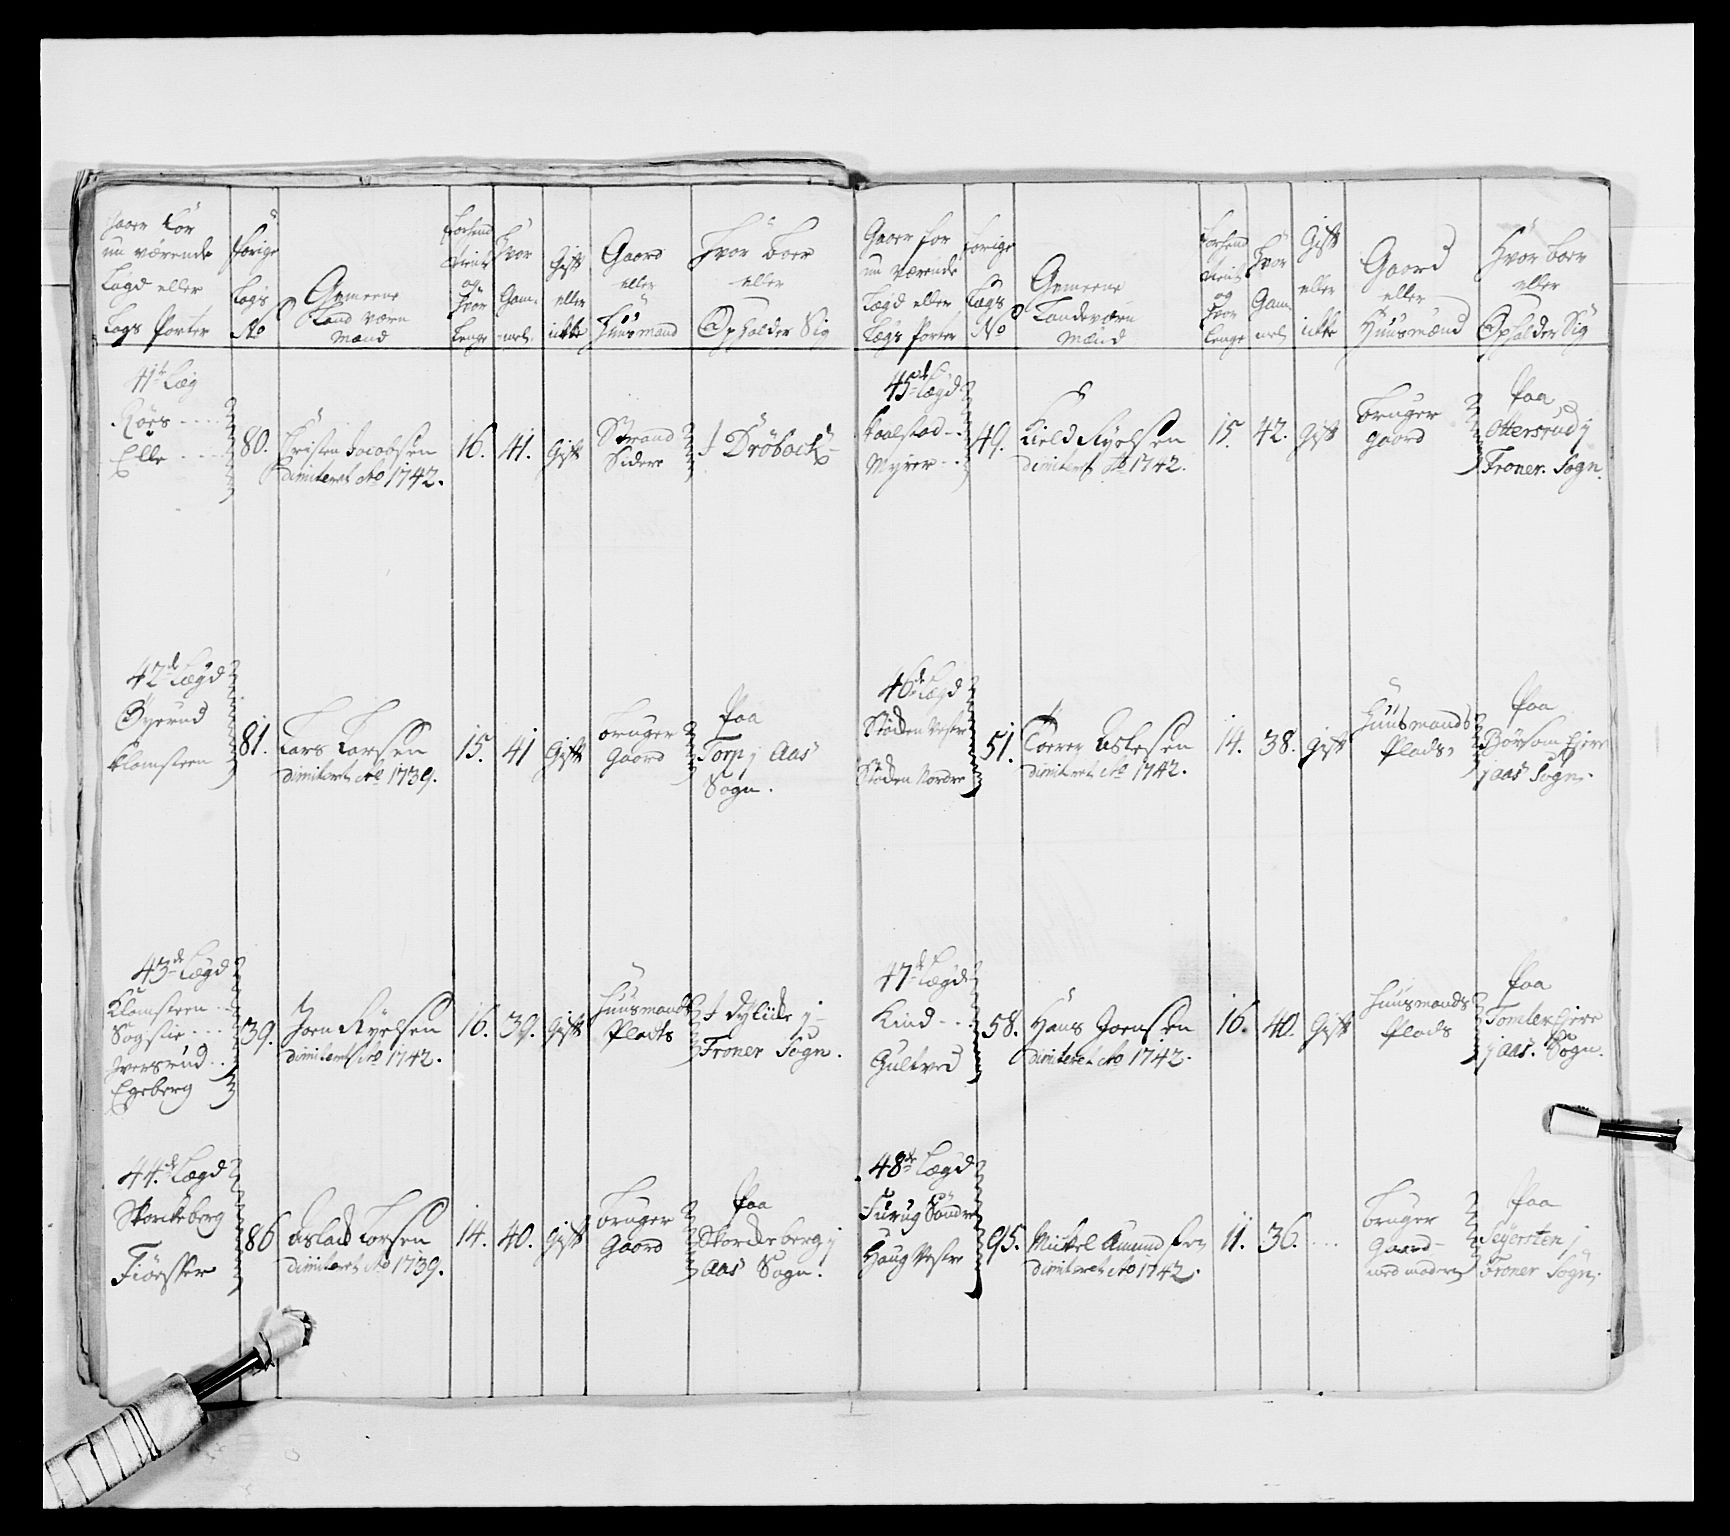 nu værende
Lægd eller
Lægs Parter
Forige
Lægs
No
Gemeene
Land værn
Mænd
og
Hvor
Lenge
Hvor
Gam-
mel
Gift
eller
ikke
Gaard
eller
Huusmand
Hvor boer
eller
Opholder Sig
41de Læg
Elle
80.
Christen Jacobsen
Dimiteret Ao 1742.
16.
41.
Gift
Strand
Sidere
I Drøback
42de Lægd
Øyerud
Klomsteen
81.
Lars Larsen
Dimiteret Ao 1739.
15.
41
Gift
bruger
Gaard
Paa
Torp j Aas
Sogn.
43de Lægd
Klomsteen
Sogstie
Iversrud
Egeberg
39.
Joen Kyelsen
Dimiteret Ao 1742.
16.
39.
Gift
Huusmands
Plads
Froner Sogn.
44de Lægd
Skorkeberg
86
Aslack Larsen
Dimiteret Ao 1739.
14.
40.
Gift
bruger
Gaard
Paa
Skorkeberg j
Aas Sogn.
Gaver for
nu værende
Lægd eller
Lægs Parter
Forige
Lægs
No
Gemeene
Landeværn
Mænd
og
Hvor
Lenge
Hvor
Gam-
mel
Gift
eller
ikke
Gaard
eller
Huusmænd
Hvor boer
eller
Opholder Sig
45de Lægd
Kaalstad
Myrer
49.
Kield Kyelsen
Dimiteret Ao 1742.
15.
42.
Gift
bruger
gaard
Paa
Ottersrud j
Froner Sogn.
46de Lægd
Støcken Vestre
Støcken Nordre
51.
Torer Aslesen
Dimiteret Ao 1742.
14.
38.
Gift
Huusmands
Plads
Paa
j Aas Sogn.
47de Lægd
Kind
Gultved
58.
Hans Joensen
Dimiteret Ao 1742.
16.
40.
Gift
Huusmands
Plads
Paa
j Aas Sogn.
48de Lægd
Furug Søndre
Haug Vestre
95.
Mickel Amundsen
Dimiteret Ao 1742.
11.
36.
bruger
Gaard
med moderen
Paa
Seyersten j
Froner Sogn.